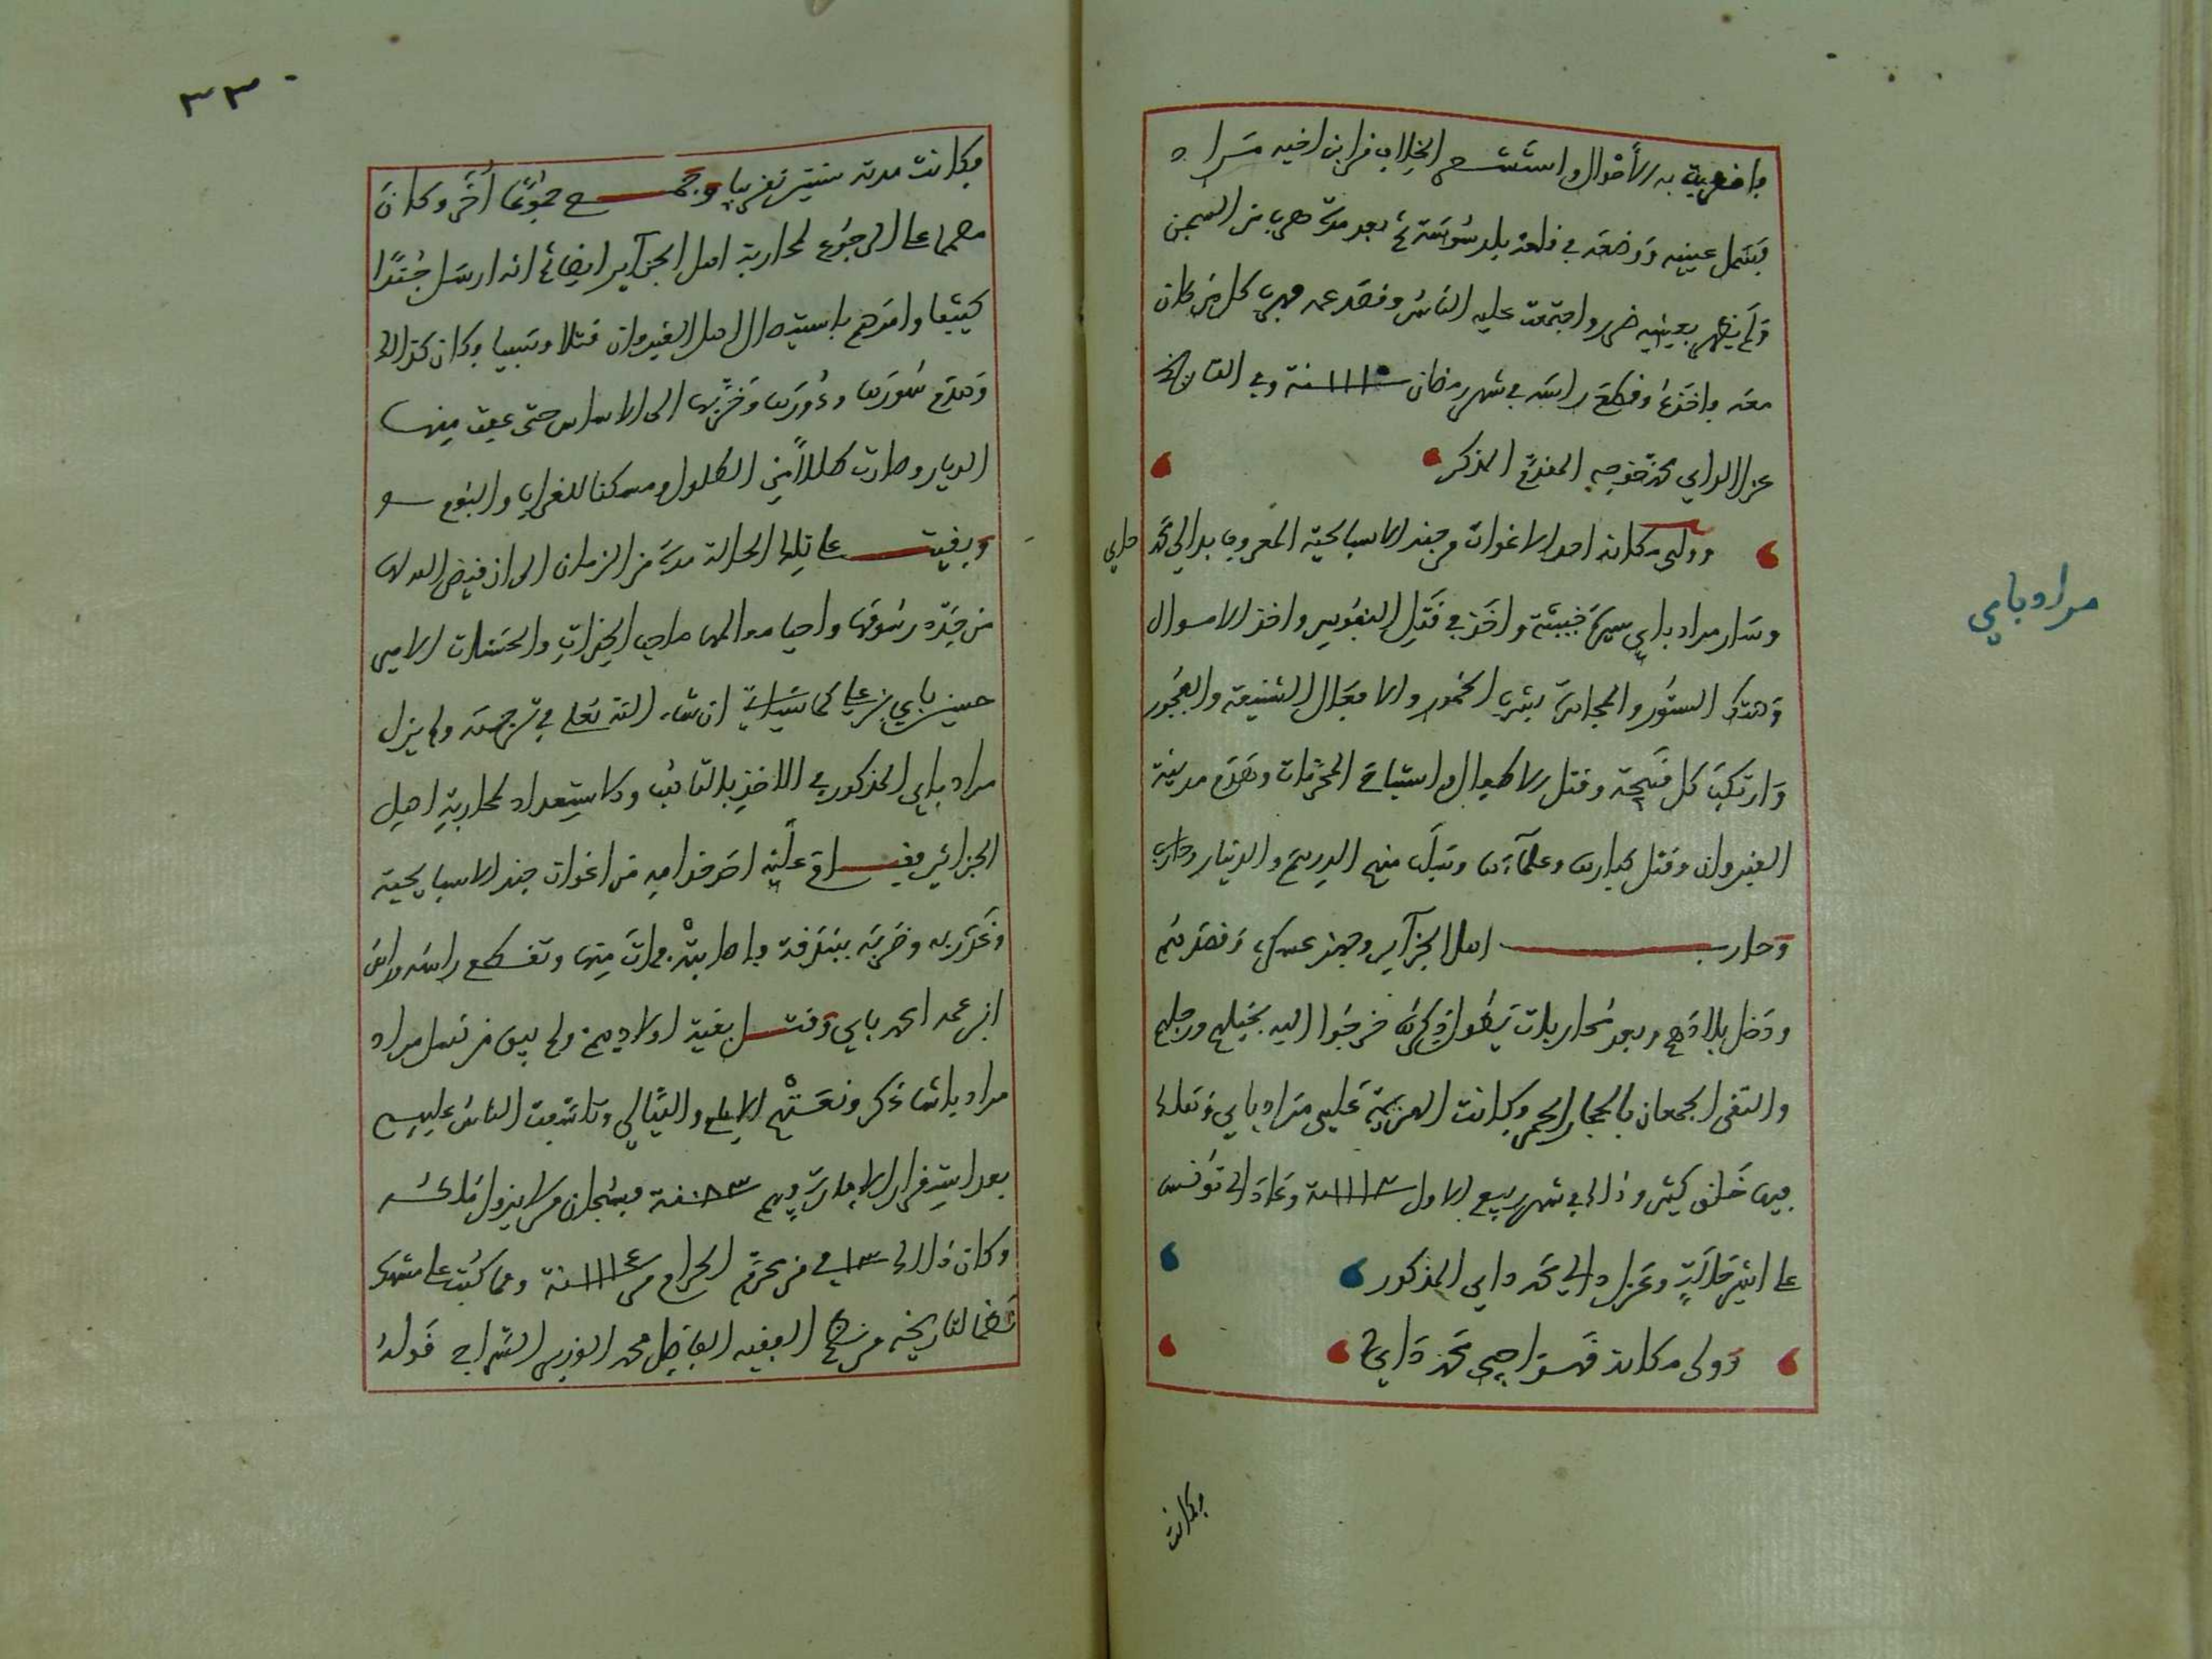 فاضطربت به الأحوال واستشعر الخلاف من ابن اخيه مراد
فسمل عينيه ووضعه في قلعة بلد سوسة ثم بعد مدة هرب من السجن
ولم يظهر بعينيه ضرر واجتمعت عليه الناس وقصد عمه فهرب كل من كان
معه فاخذه وقطع راسه في شهر رمضان سنة ١١١٠ وفي التاريخ
عزل الداي محمد خوجه المقدم الذكر
وولى مكانه احد الاغوات من جند الاسباحية المعروف بدالي محمد داي
وسار مراد باي سيرة خبيثة واخذ في قتل النفوس واخذ الاموال
وهتك الستور والمجاهرة بشرب الخمور والافعال الشنيعة والفجور
وارتكب كل قبيحة وقتل الاطفال واستباح المحرمات وهدم مدينة
القيروان وقتل كبارها وعلماءها وسلب منهم الدرهم والدينار
وحارب اهل الجزآير وجهز عسكره وقصدهم
ودخل بلادهم وبعد محاربات يطول ذكرها خرجوا اليه بخيلهم ورجلهم
والتقى الجمعان بالحجار الحمر وكانت الهزيمة على مراد باي وهلك
فيها خلق كثير وذلك في شهر ربيع الاول سنة ١١١٢ وعاد الى تونس
على اشر حالة وعزل دالي محمد داي المذكور
وولى مكانه قهواجي محمد داي
مراد باي
فكانت
٣٣
فكانت مدته سنتين تقريبا وجمع جموعا أخر وكان
مصمما على الرجوع لمحاربة اهل الجزآير ايضا ثم انه ارسل جندا
كثيفا وامرهم باستيصال اهل القيروان قتلا وسبيا وكان كذلك
وهدم سورها ودورها وخربها الى الاساس حتى عفت منها
الديار وصارت طللا من الطلول ومسكنا للغراب والبوم
وبقيت على تلك الحالة مدة من الزمان الى ان قيض الله لها
من جدد رسومها واحيا معالمها صاحب الخيرات والحسنات الامير
حسين باي بن علي كما سياتي ان شاء الله تعالى في ترجمته ولم يزل
مراد باي المذكور في الاخذ بالتاهب والاستعداد لمحاربة اهل
الجزائر فقام عليه احد خدامه من اغوات جند الاسباحية
وغدر به وضربه ببندقة فاصابته فمات منها وتقطع راسه وراس
ابن عمه احمد باي وقتل بقية اولادهم ولم يبق من نسل مراد
مراد باشا ذكر ونعتهم الايام والليالي وتاسفت الناس عليهم
بعد استقرار الامارة فيهم سنة فسبحان من لا يزول ملكه
وكان ذلك في ١٣ من محرم الحرام من سنة ١١١٤ ومما كتب على مشهد
نظما لتاريخه من نظم الفقيه الفاضل محمد الوزير السراج قوله